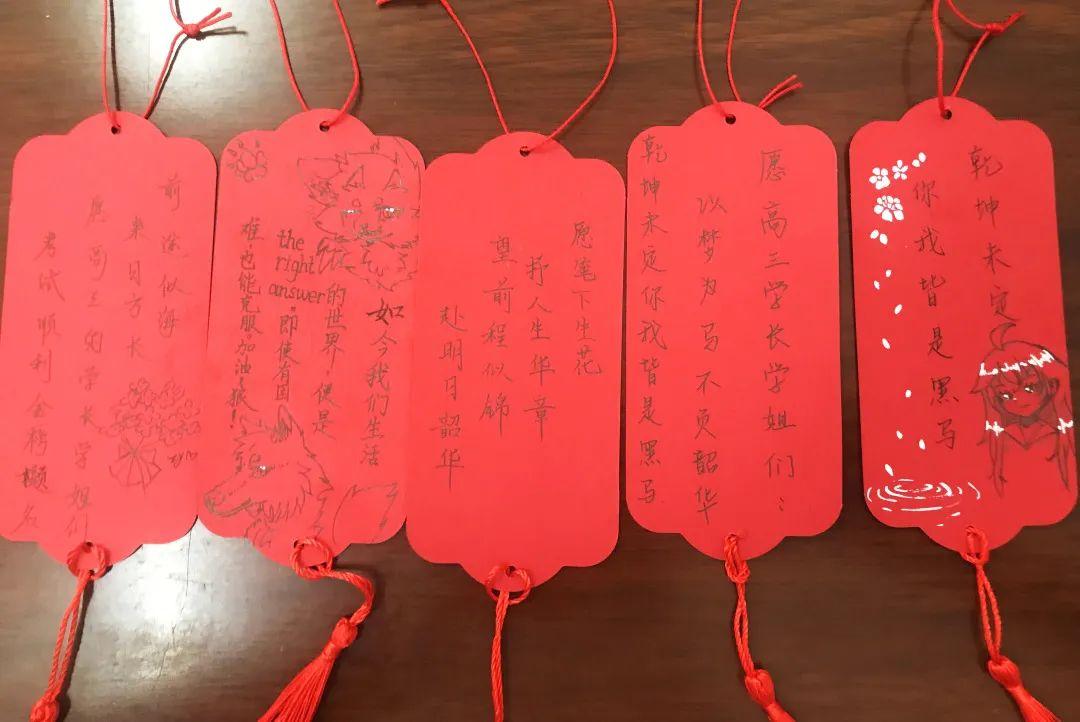 前途似海
来日方长
愿高三的学长学姐们
考试顺利金榜题名
如今我们生活
的世界,便是
the
right
answer
。即使有困
难也能克服。加油~狼!
愿笔下生花
抒人生华章
望前程似锦
赴明日韶华
愿高三学长学姐们:
以梦为马不负韶华
乾坤未定你我皆是黑马
乾坤未定
你我皆是黑马